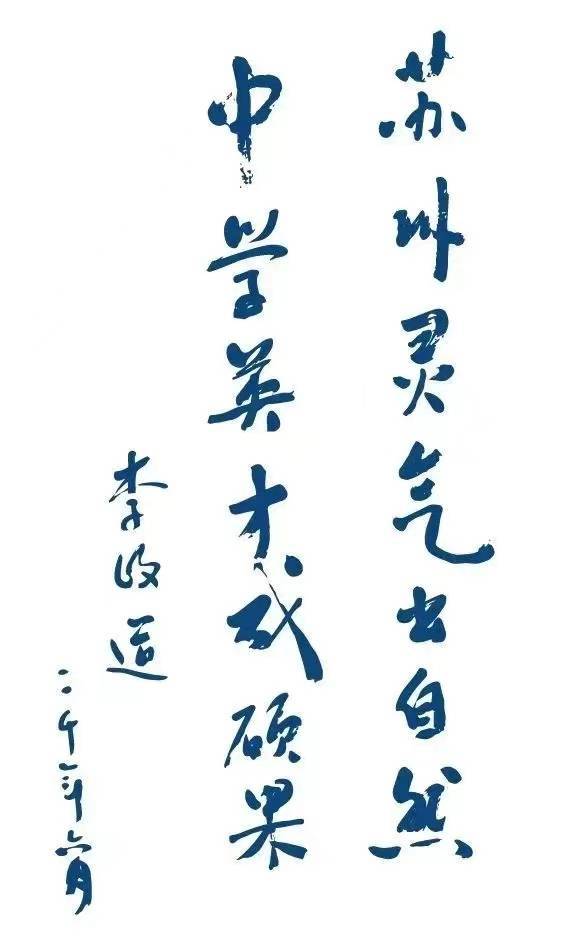 苏州灵气出自然
中学英才成硕果
李政道
二〇〇〇年六月